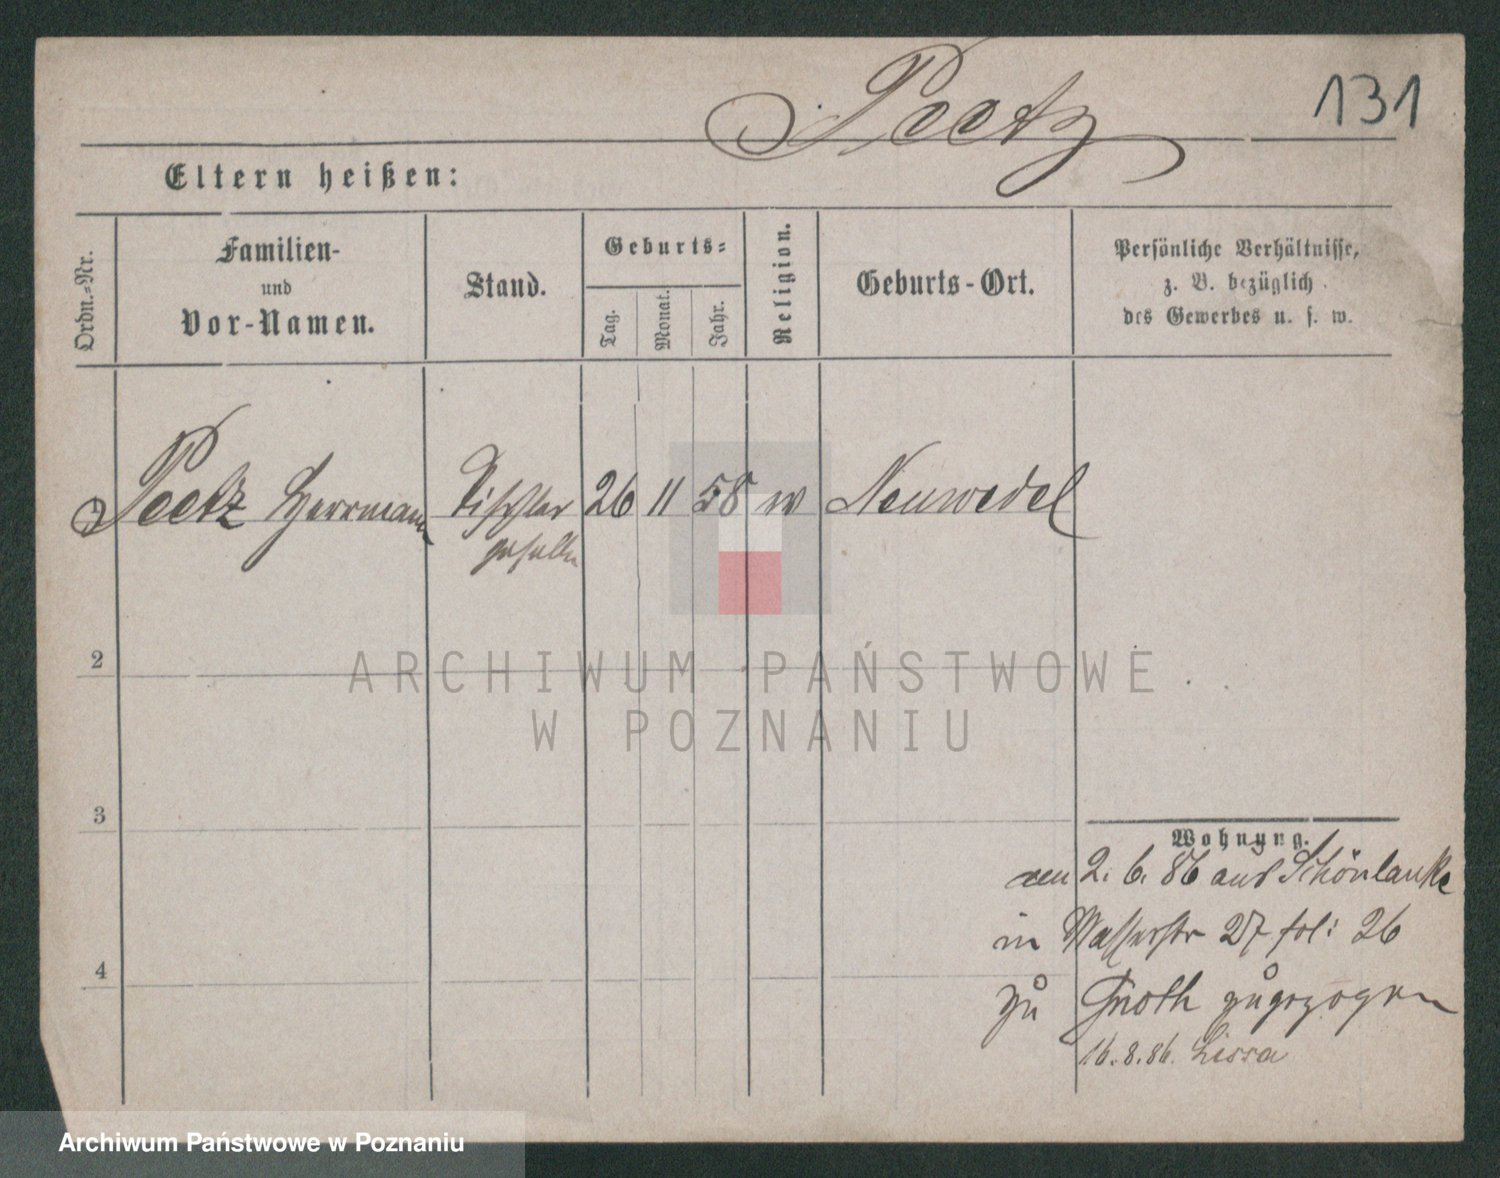 Peetz
131
Eltern heißen:
Ordn.-Nr.
Familien-
und
Vor-Namen.
Stand.
Geburts-
Tag.
Monat.
Jahr.
Religion.
Geburts-Ort.
Persönliche Verhältnisse,
z. B. bezüglich
des Gewerbes u. s. w.
Peetz Herrmann Tischler 26 11 58 Neuwedel
geselle
2
3
4
Wohnung.
2. 6. 86 aus Schönlanke
in Wasserstr 27 fol: 26
zu Gnoth zugezogen
16. 8. 86. Lissa
ARCHIWUM PAŃSTWOWE
W POZNANIU
Archiwum Państwowe w Poznaniu